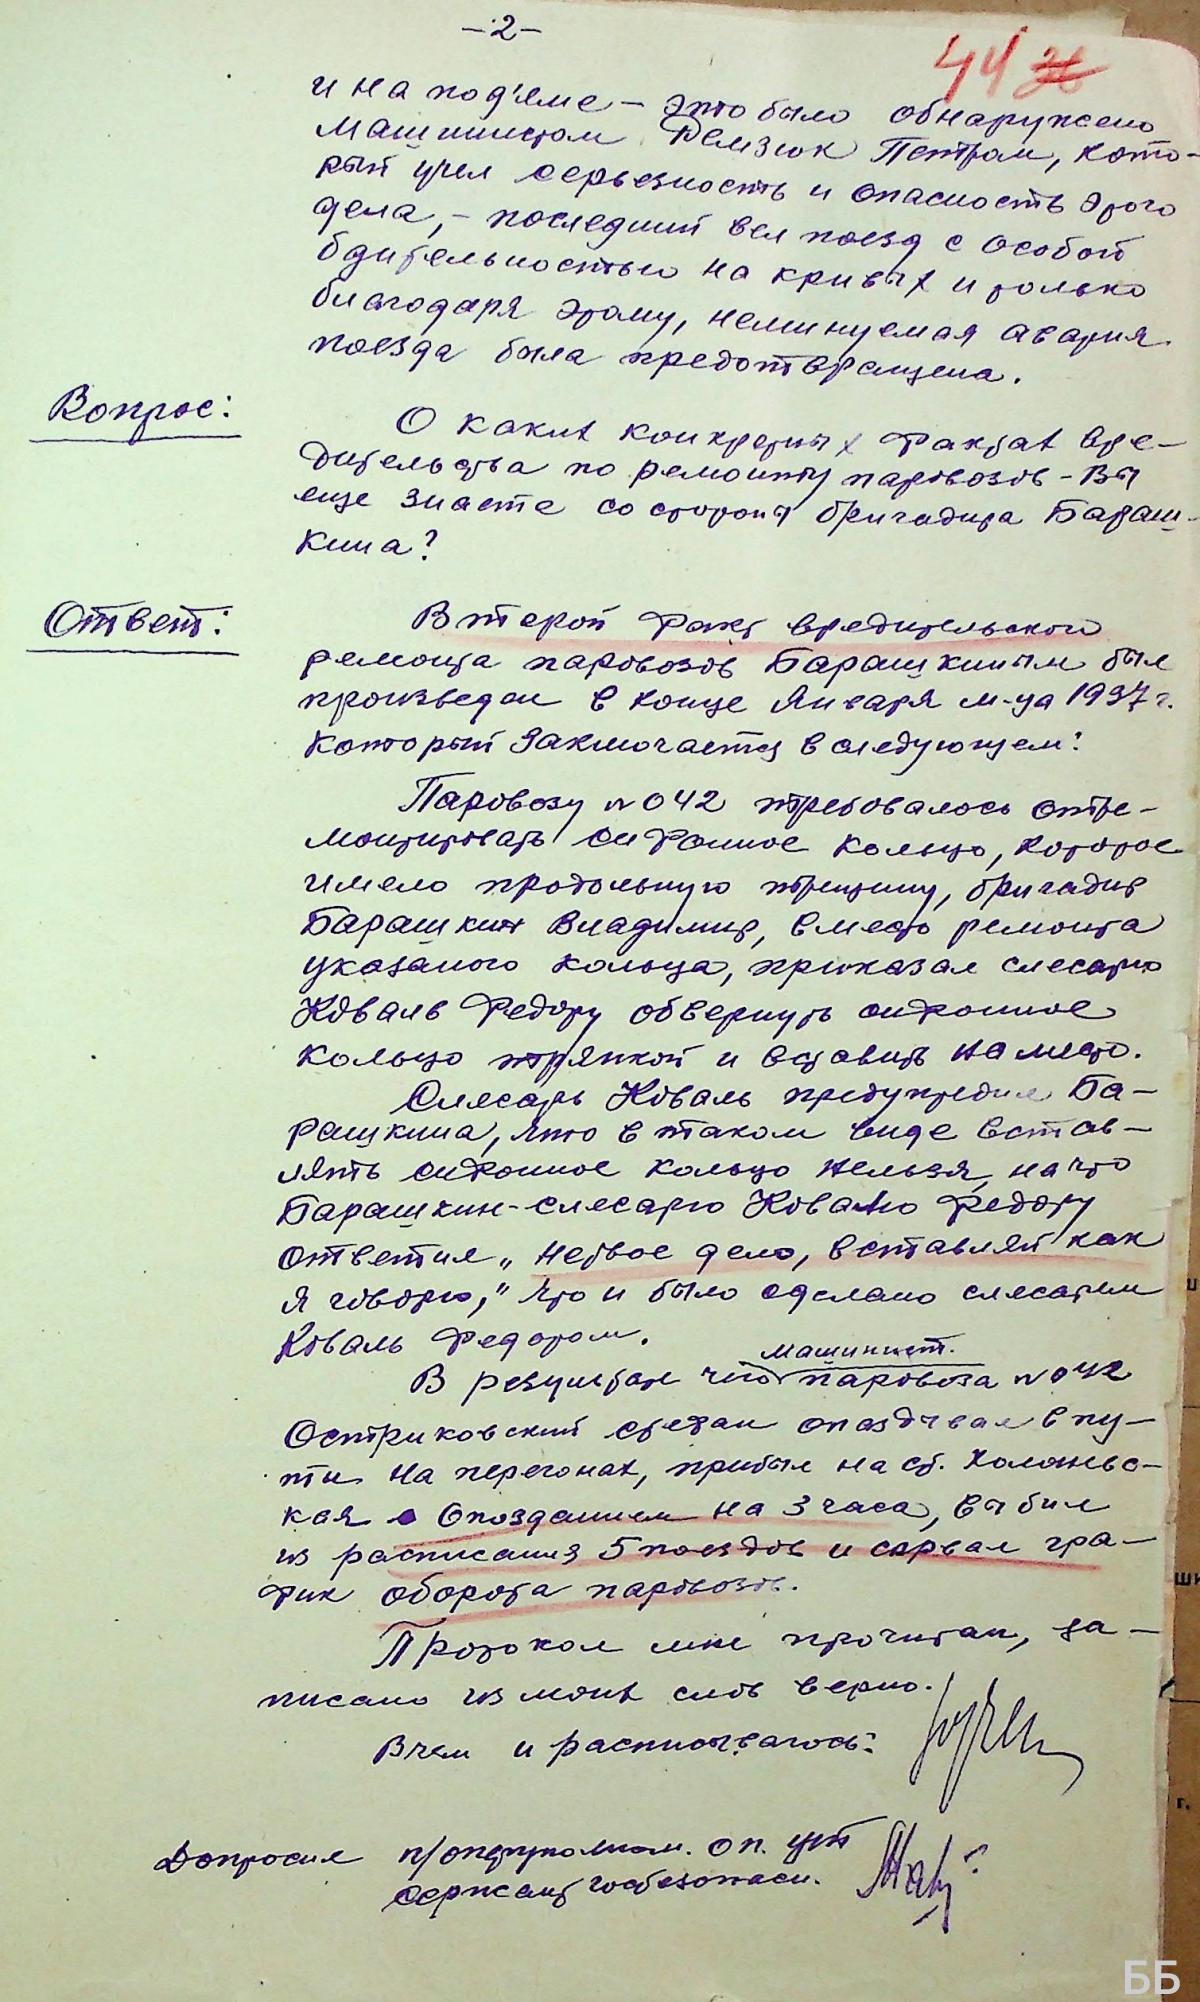 -2-
44
и на под'яме - это было обнаружено
машинистом Ремзюк Петром, кото-
рый учел серьезность и опасность этого
дела, - последний вел поезд с особой
бдительностью на кривых и только
благодаря этому, неминуемая авария
поезда была предотвращена.
Вопрос:
О каких конкретных фактах вре-
дительства по ремонту паровозов - Вы
еще знаете со стороны бригадира Бараш-
кина?
Ответ:
Второй факт вредительского
ремонта паровозов Барашкиным был
произведен в конце Января м-ца 1937 г.
который заключается в следующем:
Паровозу № 042 требовалось отре-
монтировать сифонное кольцо, которое
имело продольную трещину, бригадир
Барашкин Владимир, вместо ремонта
указаного кольца, приказал слесарю
Коваль Федору обвернуть сифонное
кольцо тряпкой и вставить на место.
Слесарь Коваль предупредил Ба-
рашкина, что в таком виде встав-
лять сифонное кольцо нельзя, на что
Барашкин - слесарю Ковалю Федору
ответил „ не твое дело, вставляй как
я говорю," что и было сделано слесарем
Коваль Федором.
машинист.
В результате чего паровоза № 042
Остриковский Степан опаздывал в пу-
ти на перегонах, прибыл на ст.
с опозданием на 3 часа, выбил
из расписания 5 поездов и сорвал гра-
фик оборота паровозов.
Протокол мне прочитан, за-
писано из моих слов верно.
В чем и расписываюсь:
Допросил п/оперуполном. оп. пкт
сержант госбезопасн.
ш
ши
г.
ББ